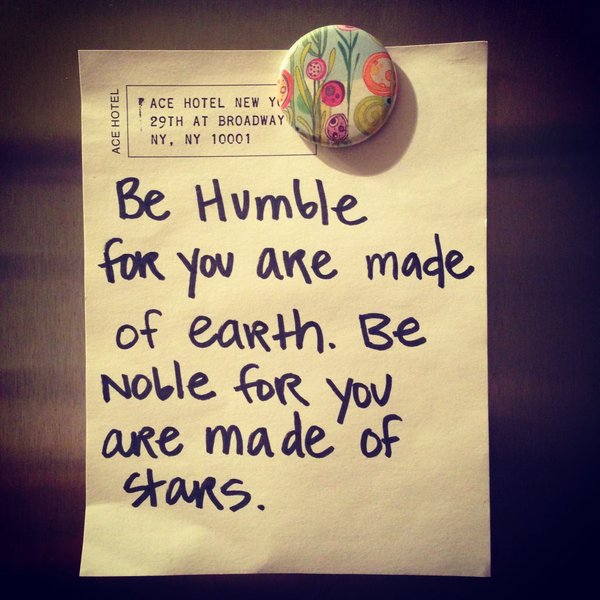 ACE HOTEL
ACE HOTEL NEW
29TH AT BROADWAY
NY, NY 10001
Be Humble
for you are made
of earth. Be
Noble for you
are made of
stars.